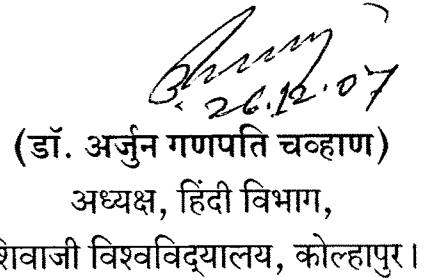 26.12.07
(डॉ. अर्जुन गणपति चव्हाण)
अध्यक्ष, हिंदी विभाग,
शिवाजी विश्वविद्यालय, कोल्हापुर।